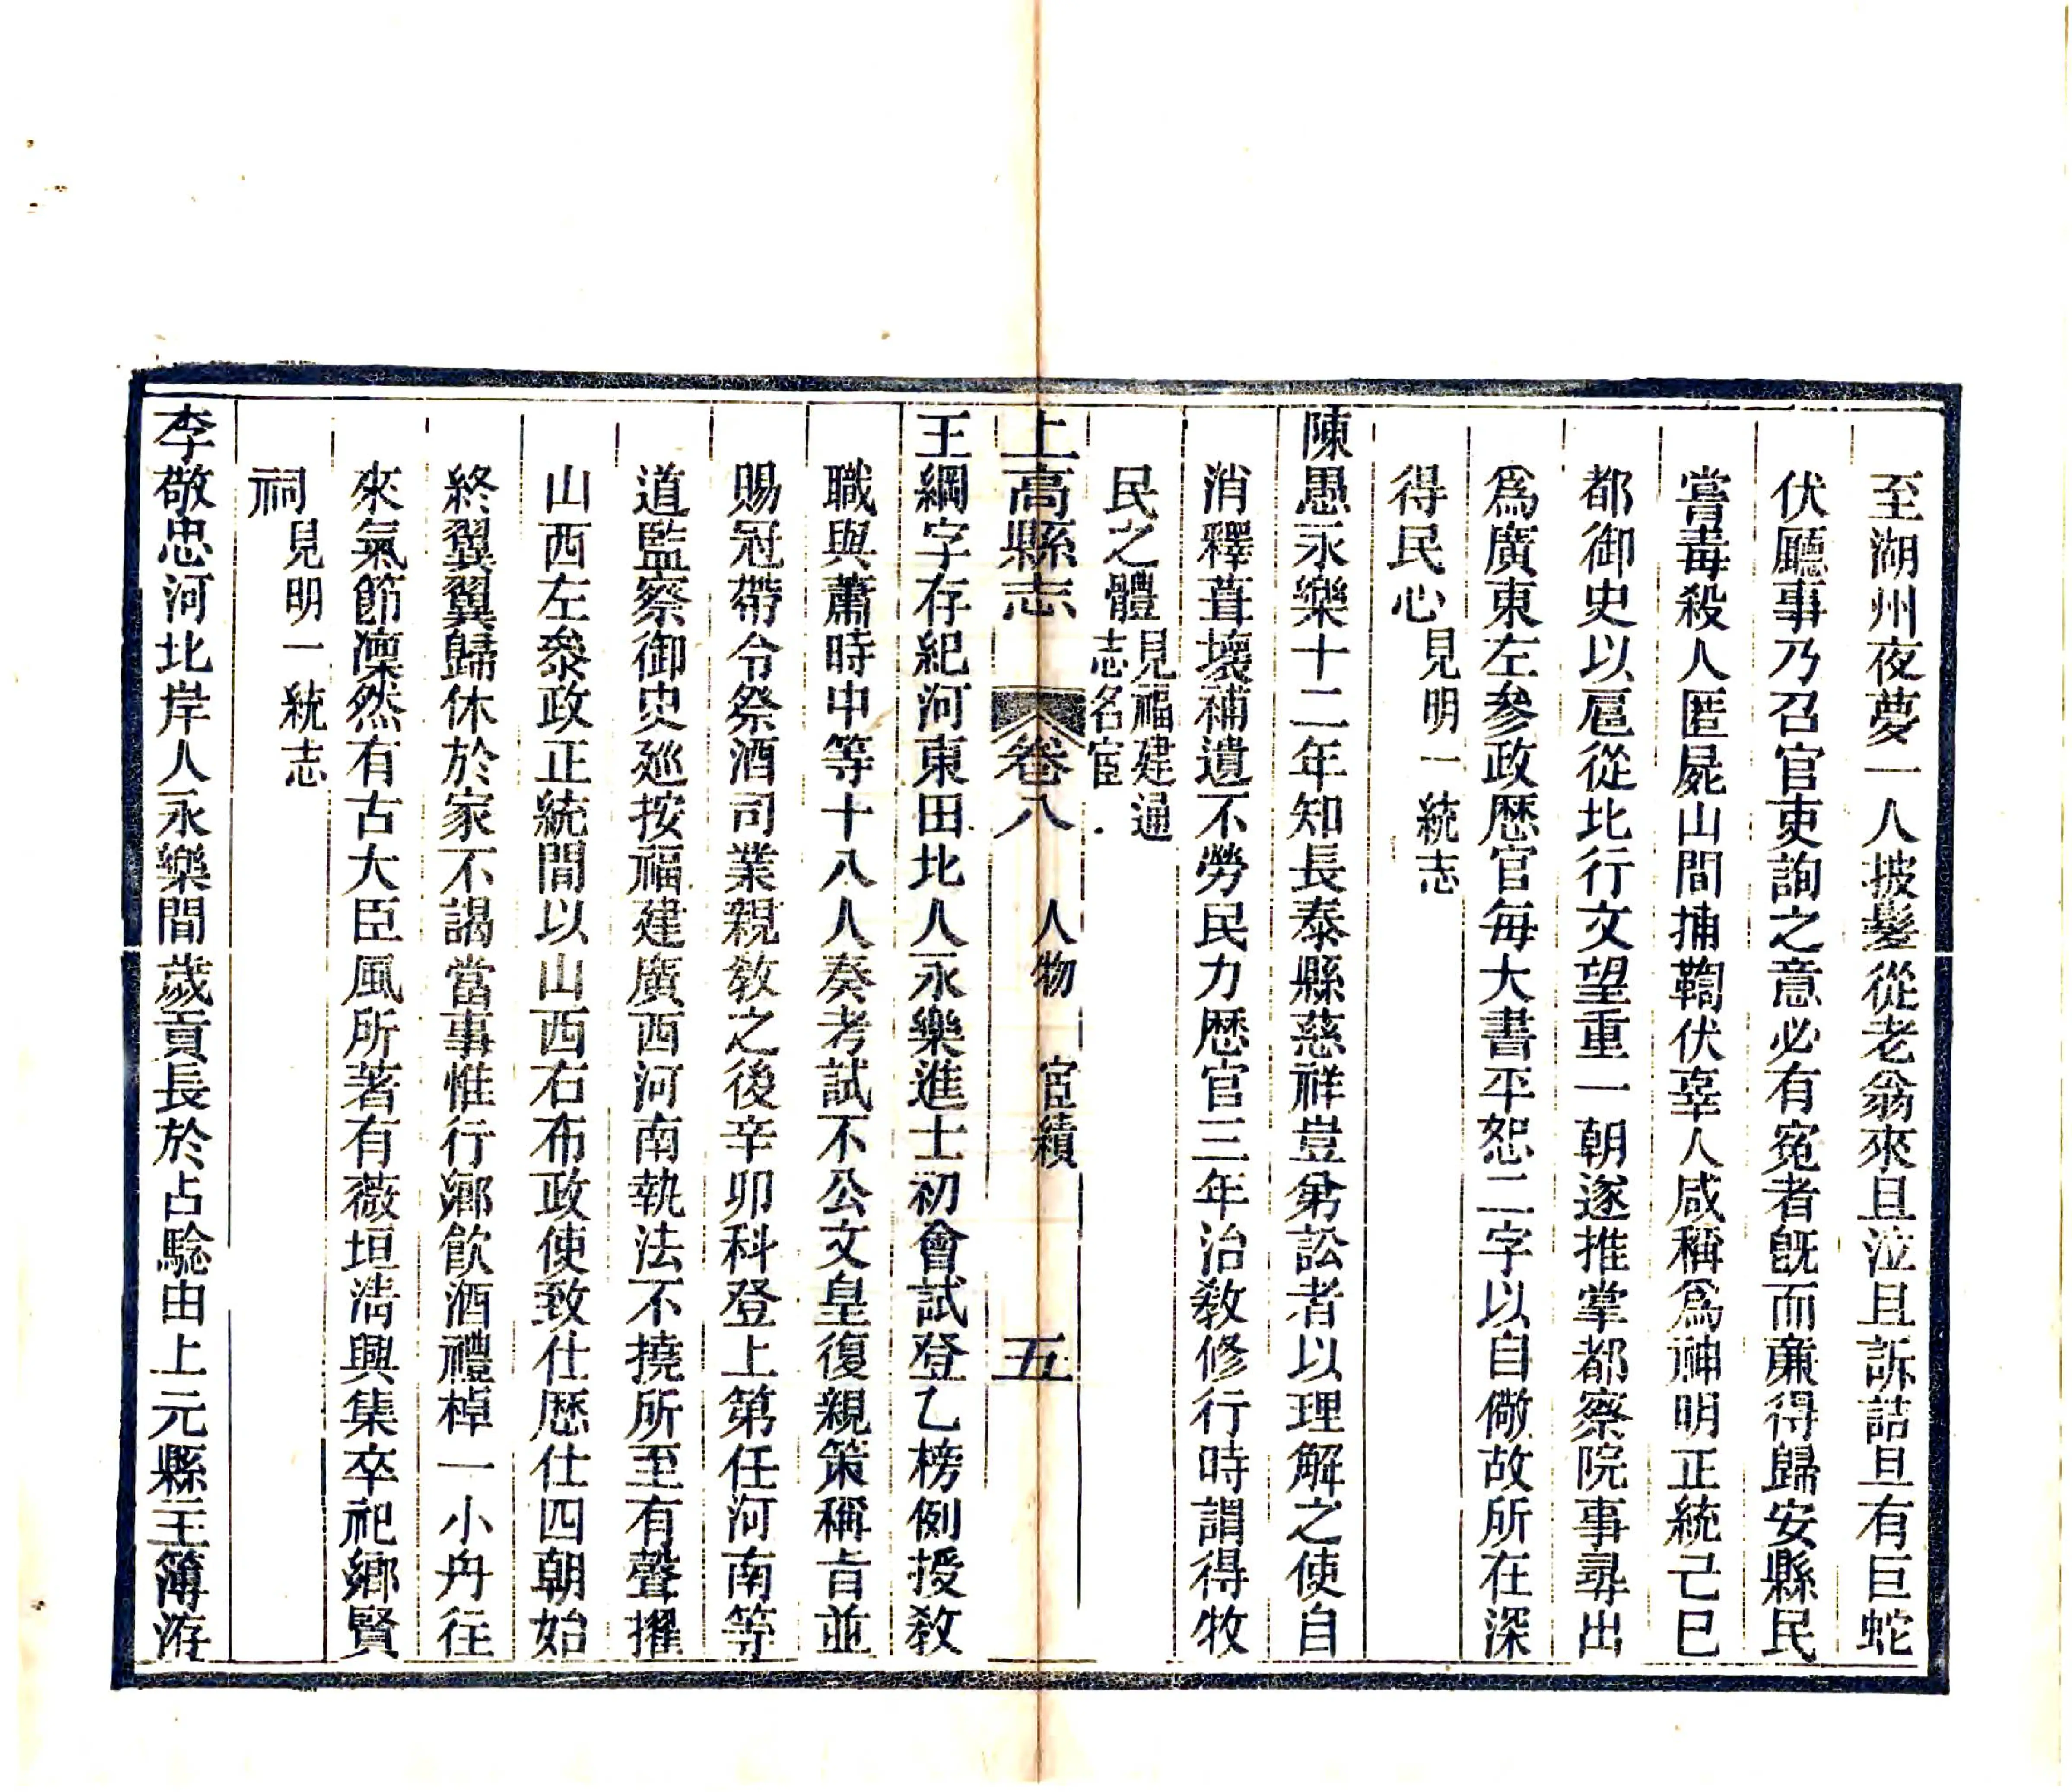 至湖州夜夢一人披髮從老翁來且泣且訴詰旦有巨蛇
伏廳事乃召官吏詢之意必有寃者旣而亷得歸安縣民
嘗毒殺人匿屍山間捕鞫伏辜人咸稱爲神明正統己巳
都御史以扈從北行文望重一朝遂推掌都察院事尋出
爲廣東左參政歴官每大書平恕二字以自儆故所在深
得民心見明一統志
陳愚永樂十二年知長泰縣慈祥豈弟訟者以理解之使自
消釋葺壞補遺不勞民力歴官三年治敎修行時謂得牧
民之體見福建通志名宦
上高縣志 卷八 人物 宦績 五
王綱字存紀河東田北人永樂進士初會試登乙榜例授敎
職與蕭時中等十八人奏考試不公文皇復親策稱旨並
賜冠帶令祭酒司業親敎之後辛卯科登上第任河南等
道監察御史廵按福建廣西河南執法不撓所至有聲擢
山西左叅政正統間以山西右布政使致仕歴仕四朝始
終翼翼歸休於家不謁當事惟行鄉飮酒禮棹一小舟往
來氣節凜然有古大臣風所著有薇垣淸興集卒祀鄉賢
祠見明一統志
李敬忠河北岸人永樂間歲貢長於占騐由上元縣主簿游